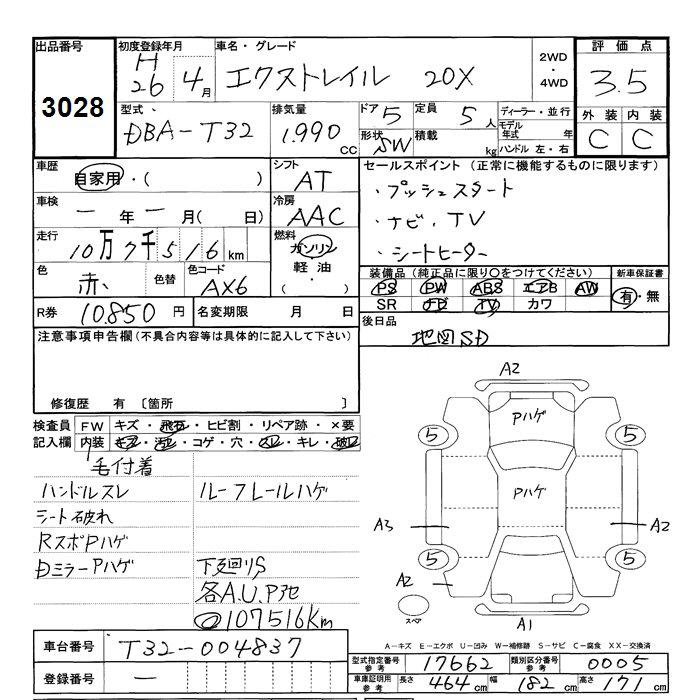 出品番号
3028
初度登録年月
H26 4月
車名・グレード
エクストレイル 20X
2WD・4WD
評価点
3.5
型式
DBA-T32
排気量
1.990 CC
ドア 5
形状 SW
定員 5人
積載 kg
ディーラー・並行
モデル年式 年
ハンドル 左・右
外装 内装
C C
車歴
自家用・( )
シフト
AT
セールスポイント (正常に機能するものに限ります)
・プッシュスタート
・ナビ・TV
・シートヒーター
車検
ー年ー月( 日)
冷房
AAC
走行
10万7千516km
燃料
ガソリン
軽油
・( )
色
赤
色替
色コード
AX6
装備品(純正品に限り○をつけてください)
PS PW ABS エアB AW
SR ナビ TV カワ
新車保証書
有・無
R券 10.850円
名変期限 月 日
後日品
地図SD
注意事項申告欄(不具合内容等は具体的に記入して下さい)
修復歴 有 〔箇所 〕
検査員記入欄
FW キズ・飛石・ヒビ割・リペア跡・×要
内装 キズ・汚レ・コゲ・穴・スレ・キレ・破レ
毛付着
ハンドルスレ
シート破れ
RスポPハゲ
DミラーPハゲ
ルーフレールハゲ
下廻りS
各A.U.P他
107516Km
A2
Pハゲ
5 5
Pハゲ
A3 A2
5 5
A2
スペア
A1
車台番号 T32-004837
登録番号 ー
A-キズ E-エクボ U-凹み W-補修跡 S-サビ C-腐食 XX-交換済
型式指定番号 参考 17662
類別区分番号 参考 0005
車庫証明用 参考 長さ 464cm 幅 182cm 高さ 171cm